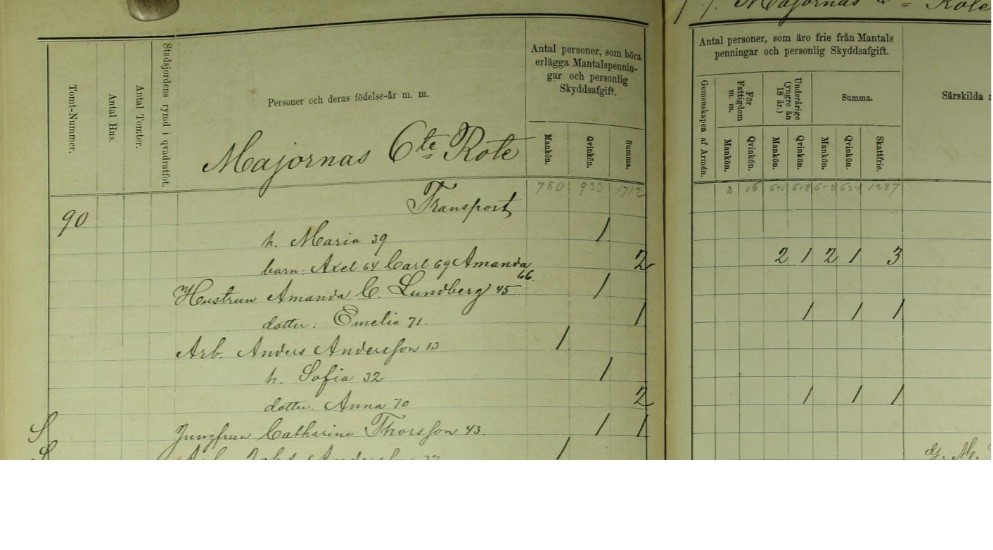 Majornas 6te Rote
Tomt-Nummer.
Antal Hus.
Antal Tomter.
Stadsjordens rymd i qvadratfot.
Personer och deras födelse-år m. m.
Antal personer, som böra
erlägga Mantalspennin-
gar och personlig
Skyddsafgift.
Mankön.
Qvinkön.
Summa.
Antal personer, som äro frie från Mantals
penningar och personlig Skyddsafgift.
Gemenskapen af Armén.
För
Fattigdom
m. m.
Underårige
(yngre än
18 år.)
Summa.
Särskilda
Mankön.
Qvinkön.
Mankön.
Qvinkön.
Mankön.
Qvinkön.
Skattfrie.
Majornas 6te Rote
780 933 1712 2 16
90 Transport
h. Maria 39 1
barn: Axel 64 Carl 69 Amanda 66 2 2 1 2 1 3
Hustrun Amanda C. Lundberg 45 1
dotter: Emelia 71. 1 1 1 1
Arb. Anders Andersson 13 1
h. Sofia 32 1
dotter. Anna 70 2 1 1 1
S Jungfrun Catharina Thorsson 43. 1 1